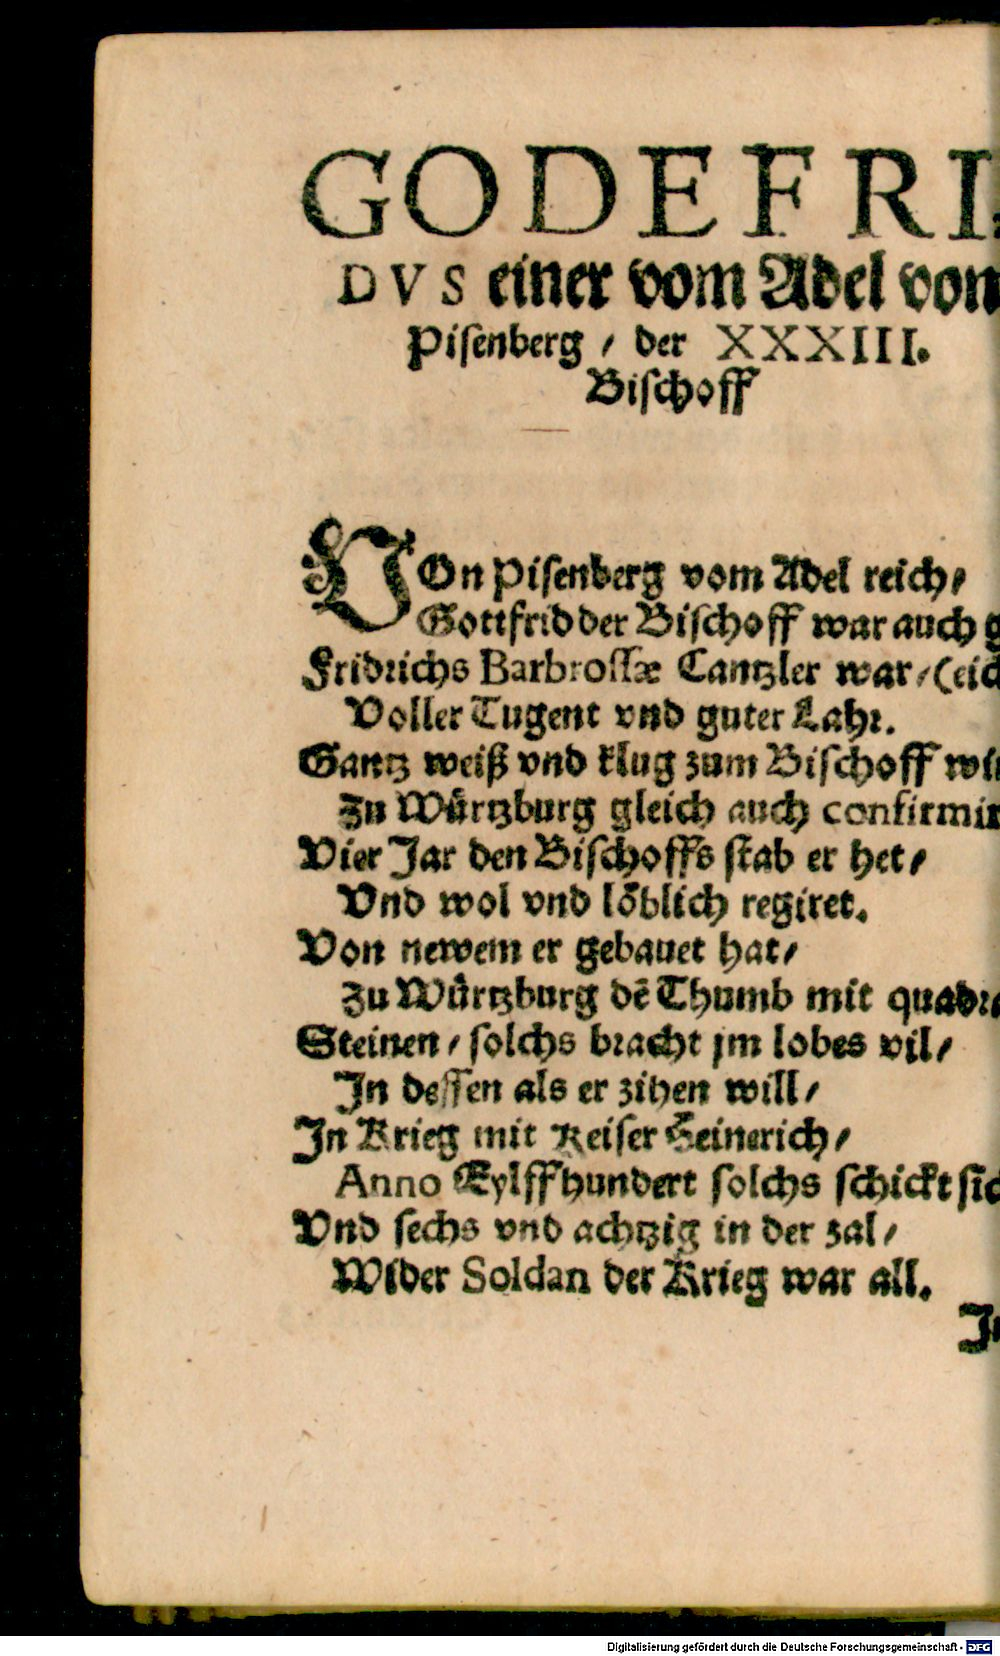 GODEFRI-
DVS einer vom Adel von
Pisenberg / der XXXIII.
Bischoff
VOn Pisenberg vom Adel reich /
Gottfrid der Bischoff war auch g
Fridrichs Barbrossæ Cantzler war / (eich
Voller Tugent vnd guter Lahr.
Gantz weiß vnd klug zum Bischoff
Zu Wůrtzburg gleich auch confirmir
Vier Jar den Bischoffs stab er het /
Vnd wol vnd lőblich regiret.
Von newem er gebauet hat /
Zu Wůrtzburg dẽ Thumb mit quadr
Steinen / solchs bracht jm lobes vil /
In dessen als er zihen will /
In Krieg mit Keiser Heinerich /
Anno Eylffhundert solchs schickt sich
Vnd sechs vnd achtzig in der zal /
Wider Soldan der Krieg war all.
Digitalisierung gefördert durch die Deutsche Forschungsgemeinschaft - DFG